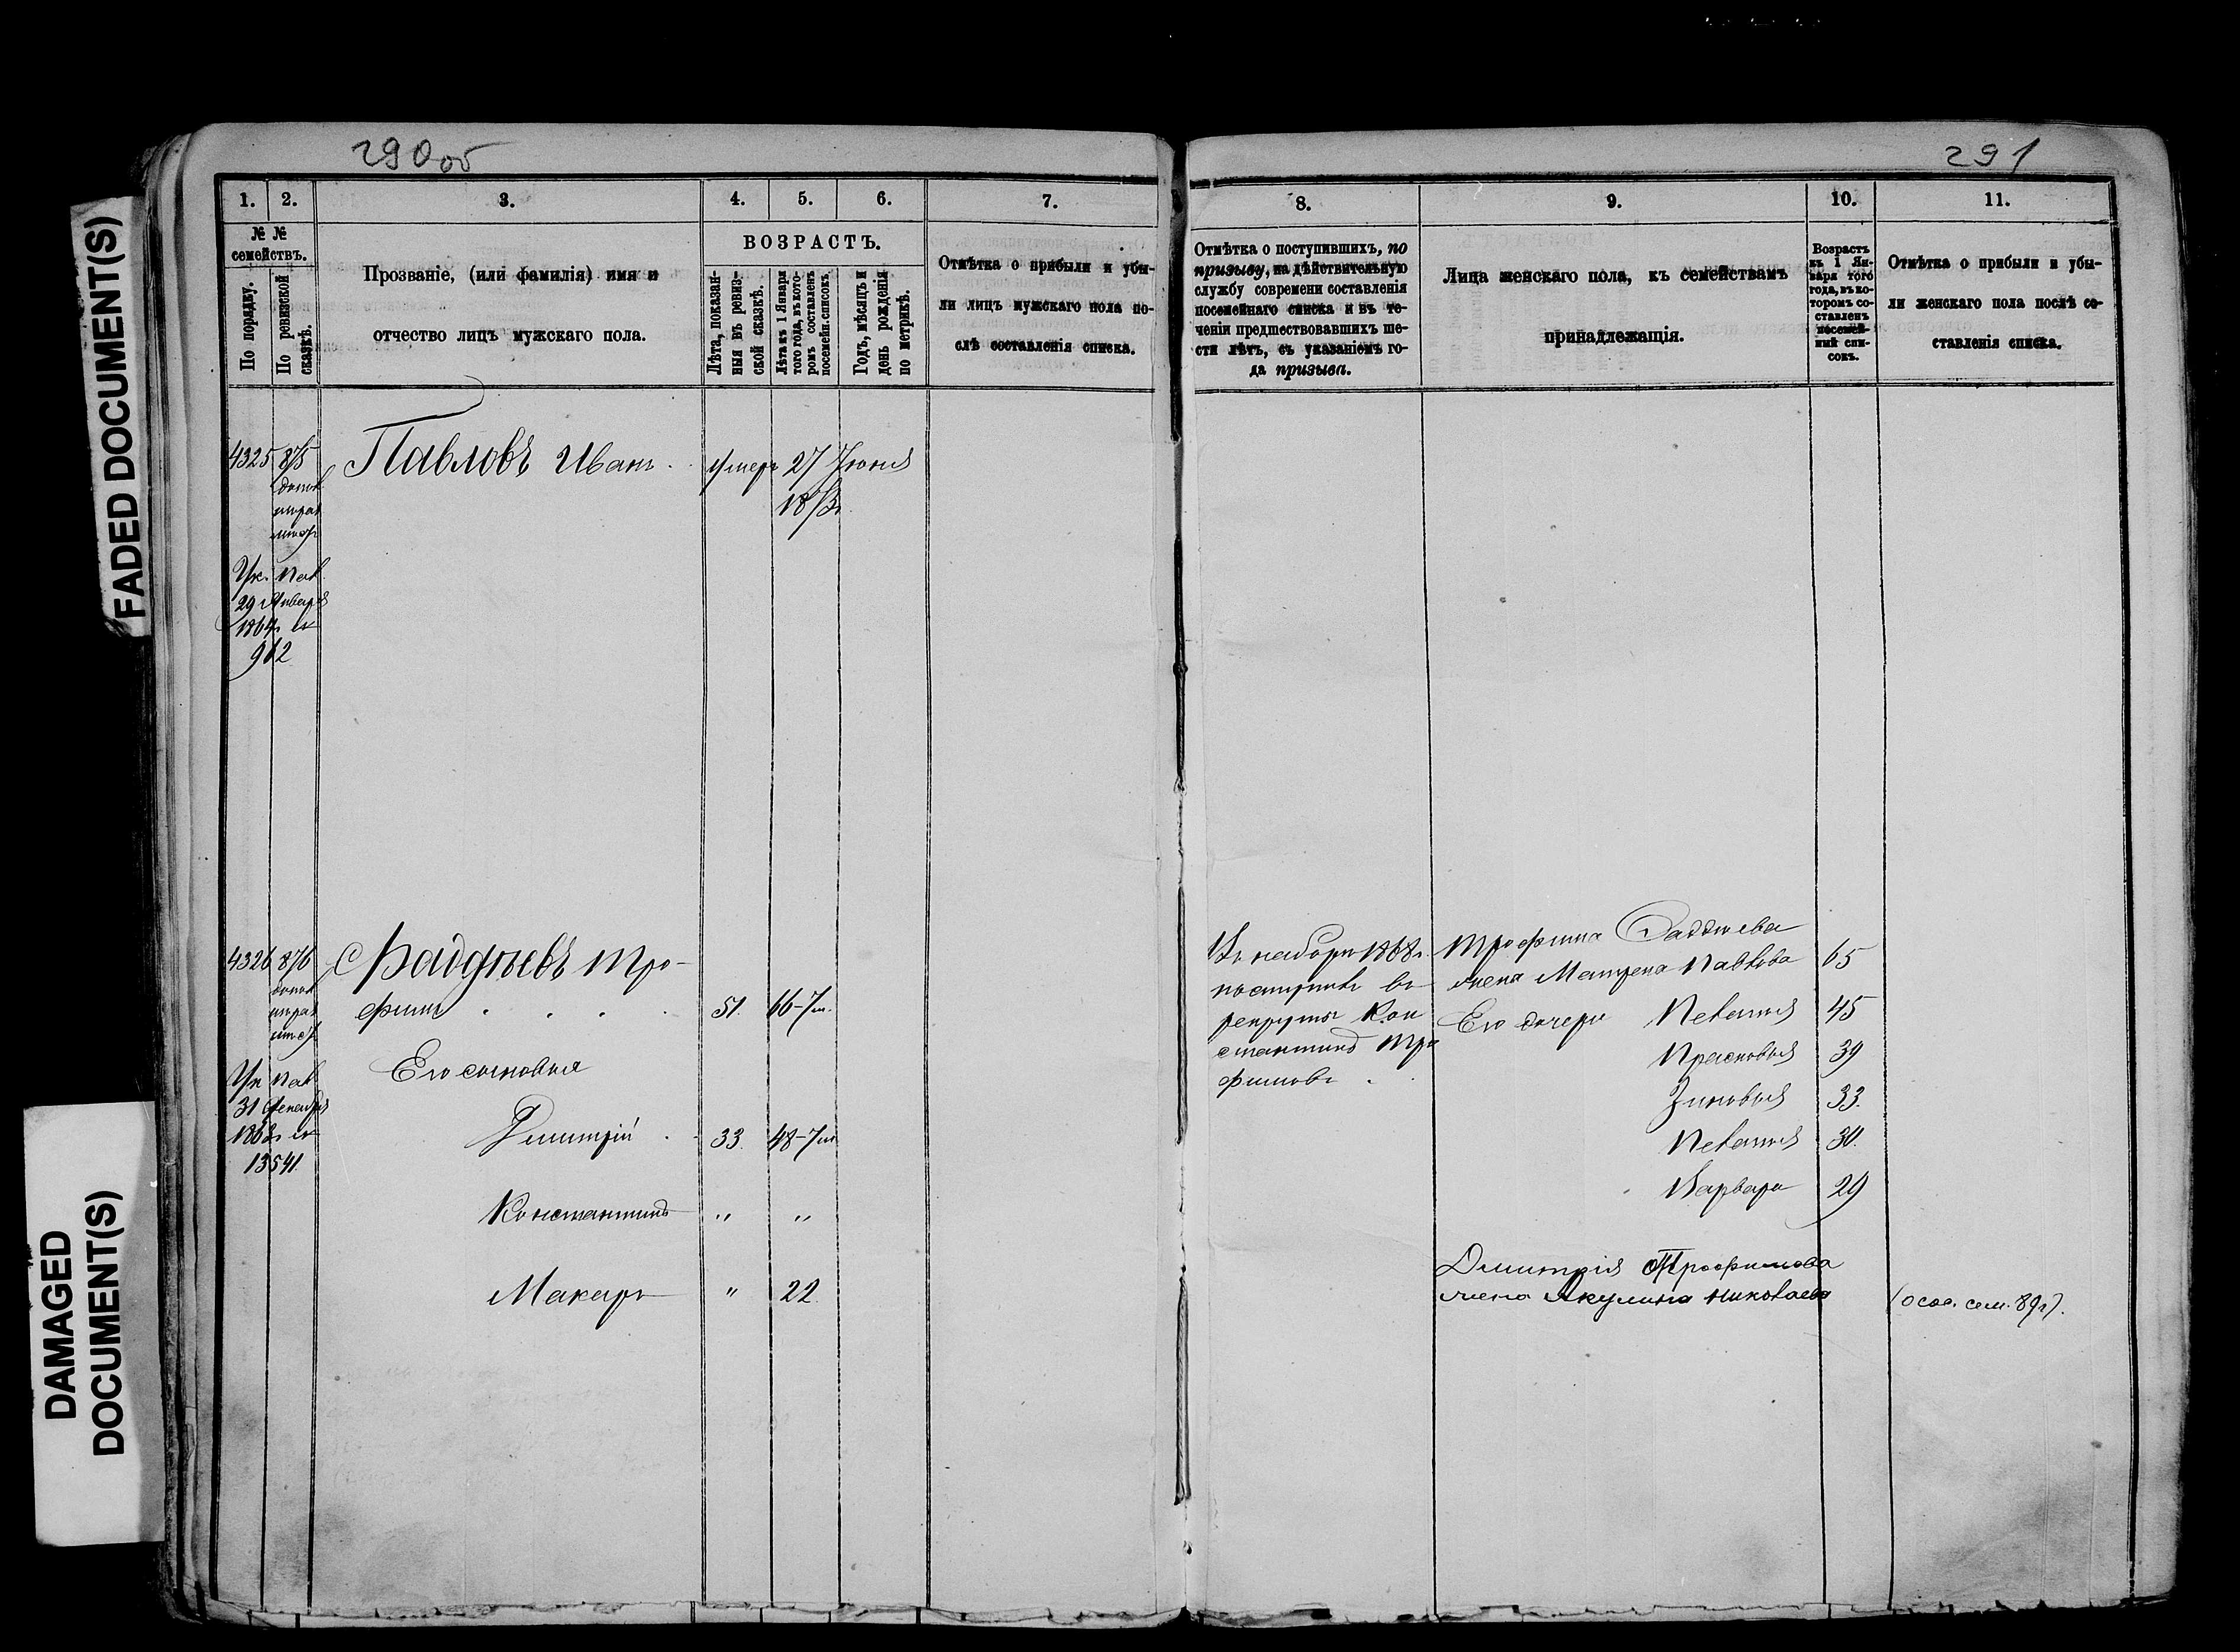 FADED DOCUMENT(S)
DAMAGED
DOCUMENT(S)
290об
1.
2.
3.
4.
5.
6.
7.
№ №
семействъ.
По порядку.
По ревизской
сказкѣ.
Прозваніе, (или фамилія) имя и
отчество лицъ мужскаго пола.
ВОЗРАСТЪ.
Лѣта, показан-
ныя въ ревиз-
ской сказкѣ.
Лѣта къ 1 Января
того года, въ кото-
ромъ составленъ
посемейн. списокъ.
Годъ, мѣсяцъ и
день рожденія
по метрикѣ.
Отмѣтка о прибыли и убы-
ли лицъ мужскаго пола по-
слѣ составленія списка.
4325 875
Павловъ Иванъ умеръ 27 Іюня
187
Ук. пал.
29 Января
1864г. №
912
4326 876
Фаддѣевъ Тро-
фимъ 51. 66-7м.
Его сыновья
Ук пал
31 Декабря
186
13541.
Дмитрій 33. 48-7м
Константинъ " "
Макаръ " 22.
291
8.
9.
10.
11.
Отмѣтка о поступившихъ, по
призыву, на дѣйствительную
службу современи составленія
посемейнаго списка и въ те-
ченіи предшествовавшихъ ше-
сти лѣтъ, съ указаніемъ го-
да призыва.
Лица женскаго пола, къ семействамъ
принадлежащія.
Возрастъ
къ 1 Ян-
варя того
года, въ ко-
торомъ со-
ставленъ
посемей-
ный спи-
сокъ.
Отмѣтка о прибыли и убы-
ли женскаго пола послѣ со-
ставленія списка.
Въ наборъ 1868г.
поступилъ въ
рекруты Кон
стантинъ Тро
фимовъ
Трофима Фаддѣева
жена Матрена Павлова 65
Его дочери Пелагия 45
Прасковья 39
Зиновья 33.
Пелагия 30.
Варвара 29
Дмитрія Трофимова
жена Акулина Николаева
(особ. сем. 89г).